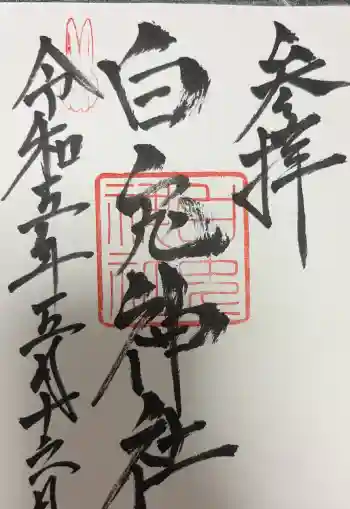 参拝
白兎神社
令和五年五月十六日